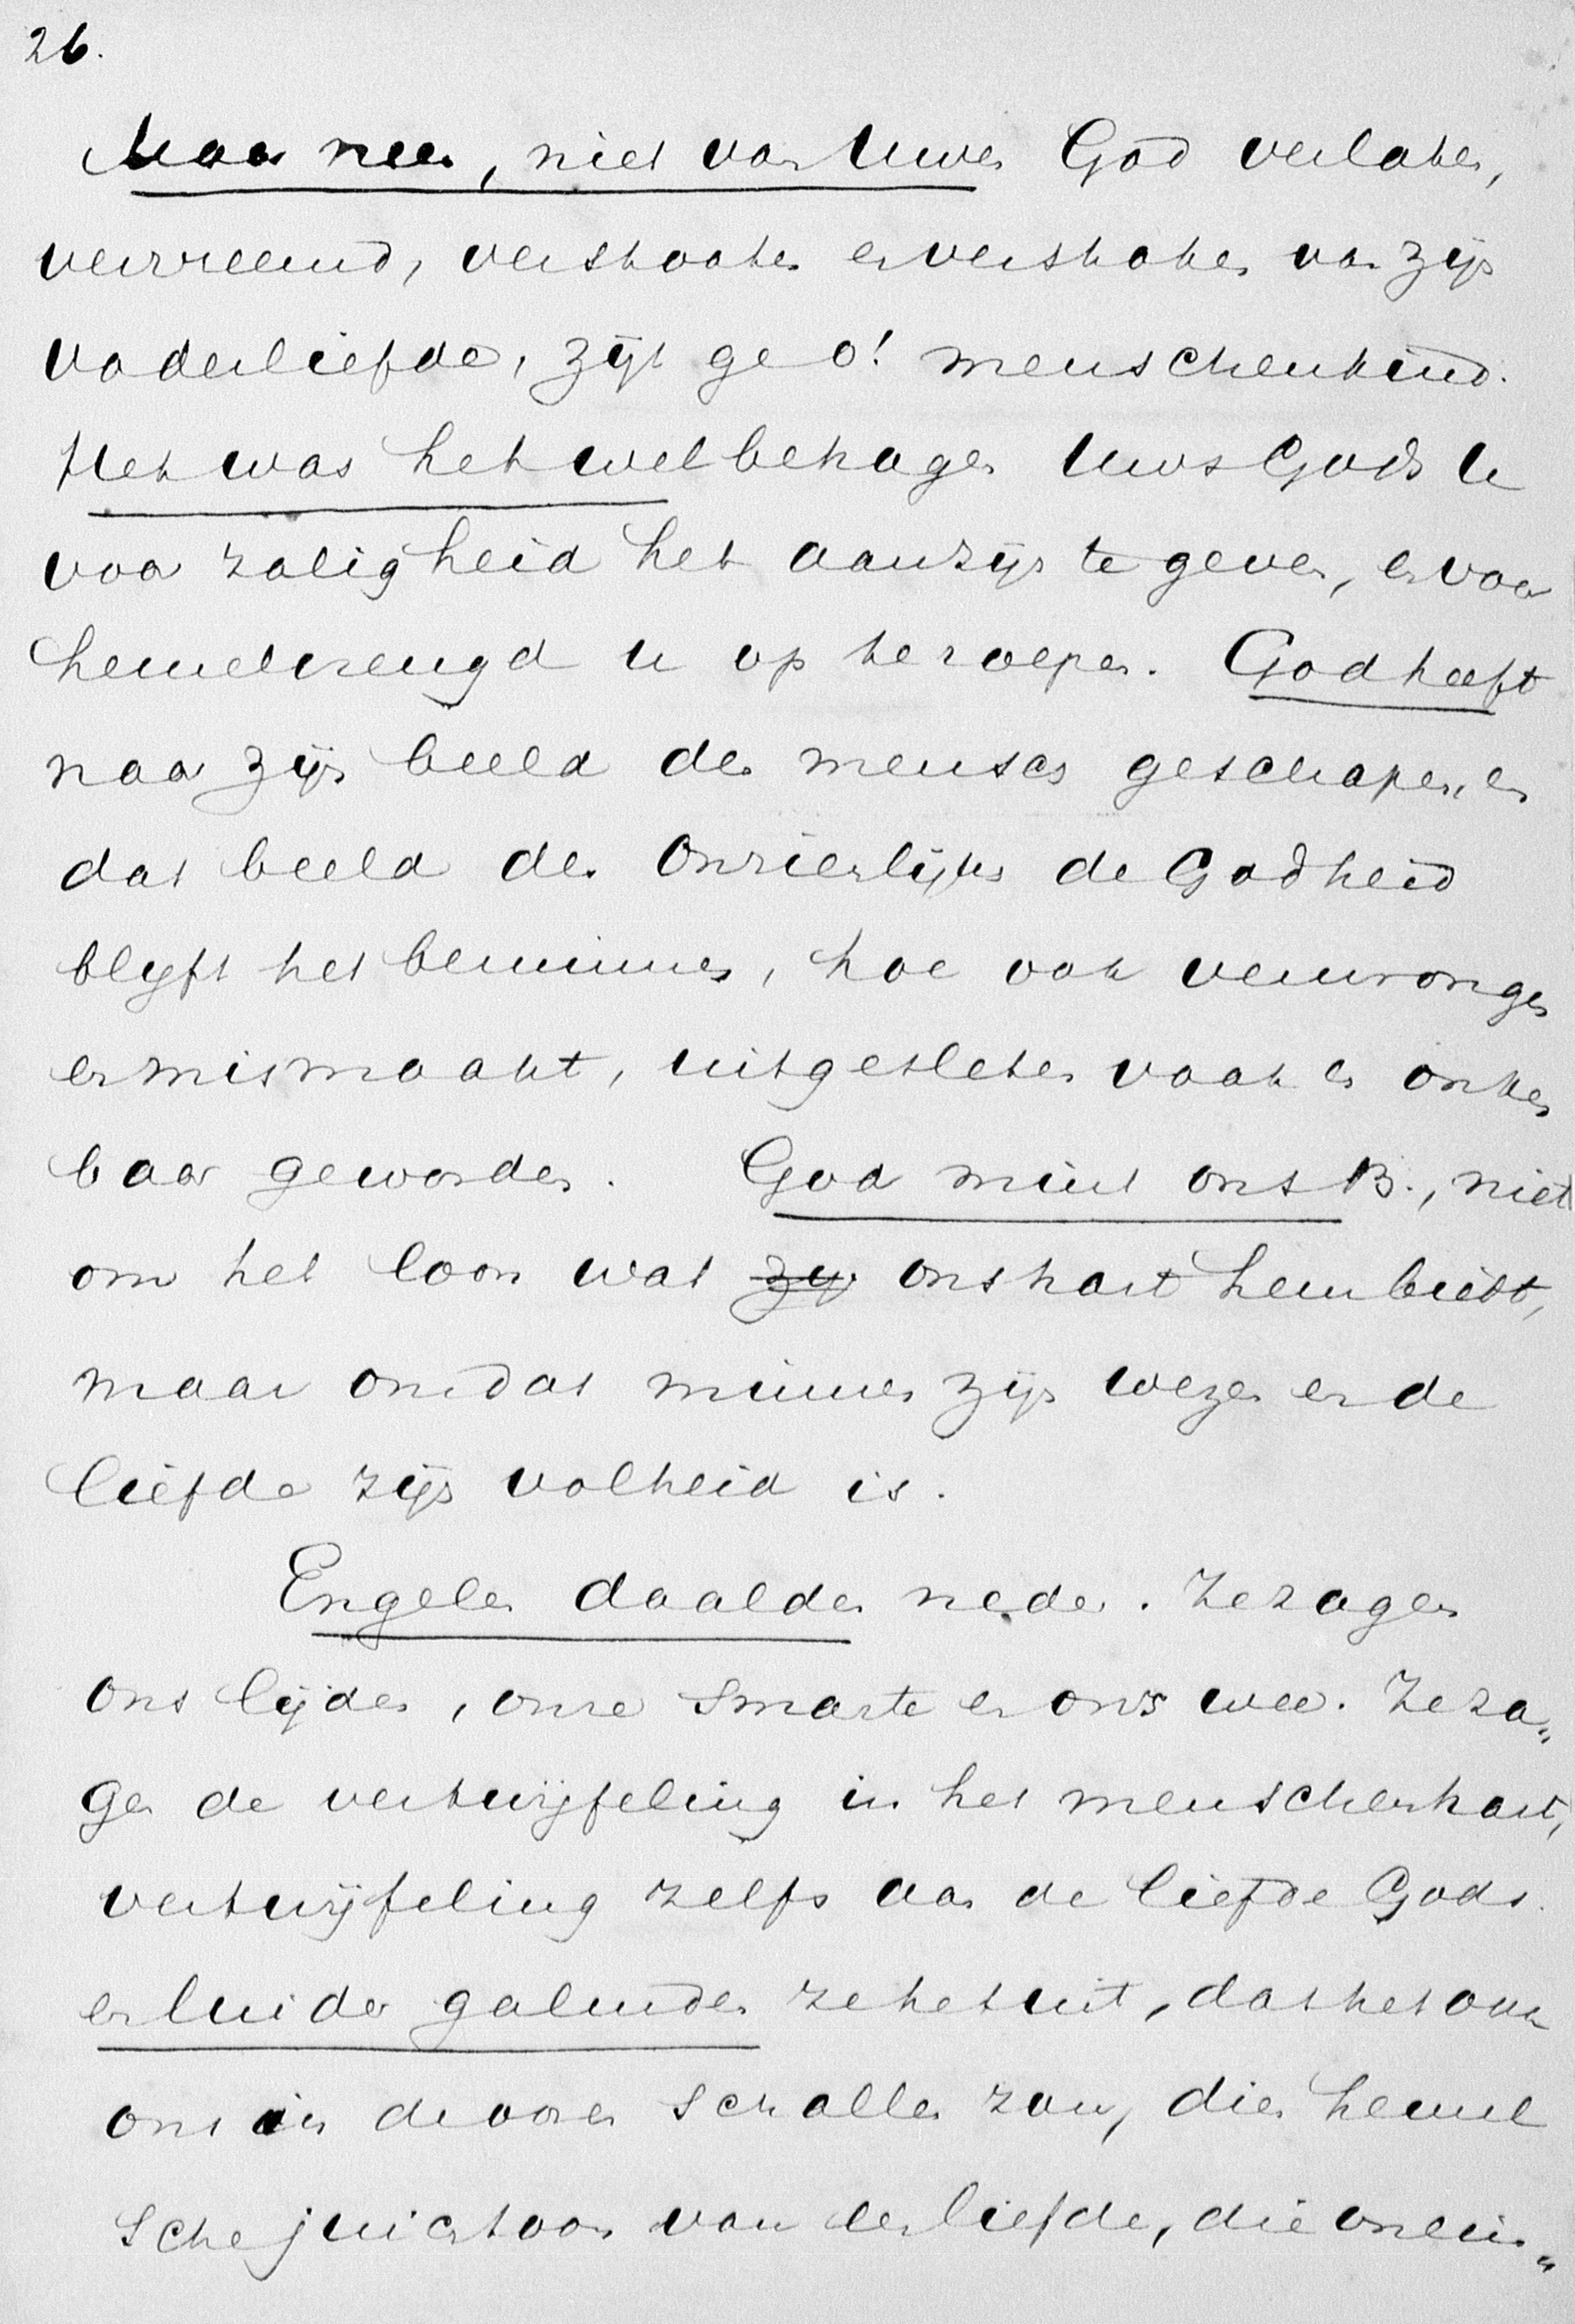 26.
Maar neen, niet van Uwen God verlaten,
vervreemd, verstooten en verstoken van zijn
vaderliefde, zijt ge o! menschenkind.
Het was het welbehagen Uws Gods U
voor zaligheid het aanzijn te geven, en voor
hemelvreugd u op te roepen. God heeft
naar zijn beeld den mensch geschapen, en
dat beeld der Onzienlijke de Godheid
blijft het beminnen, hoe ook verwrongen
en mismaakt, uitgesleten vaak en onken
baar geworden. God mint ons B., niet
om het loon wat zij ons hart hem biedt,
maar omdat minnen zijn wezen en de
liefde zijn volheid is.
Engelen daalden neder. Ze zagen
ons lijden, onze smarte en ons wee. Ze za„
gen de vertwijfeling in het menschenhart,
vertwijfeling zelfs aan de liefde Gods.
en luider galmden ze het uit, dat het ook
ons in de ooren schallen zou, dien hemel
sche juichtoon van een liefde, die onein„